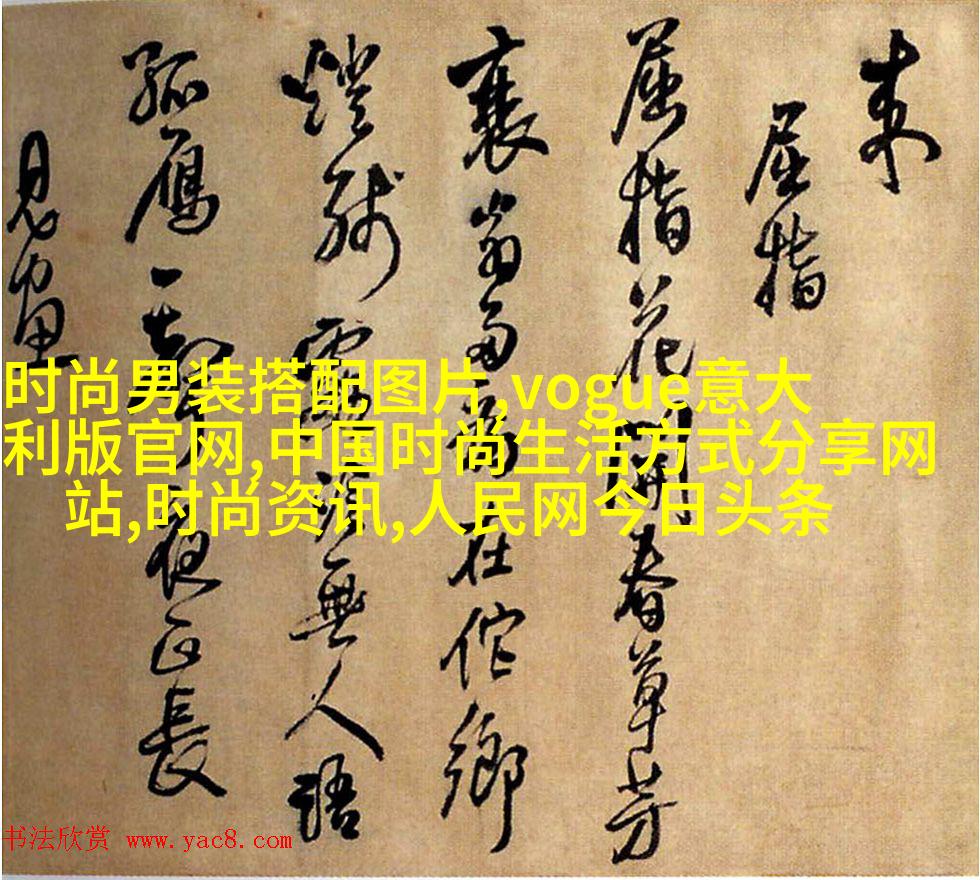 屈指
屈指花開春草芳
衰翁多在佗鄉
燈殘無人語
孤雁一聲夜正長
見
时尚男装搭配图片,vogue意大
利版官网,中国时尚生活方式分享网
站,时尚资讯,人民网今日头条
书法欣赏 www.yac8.com